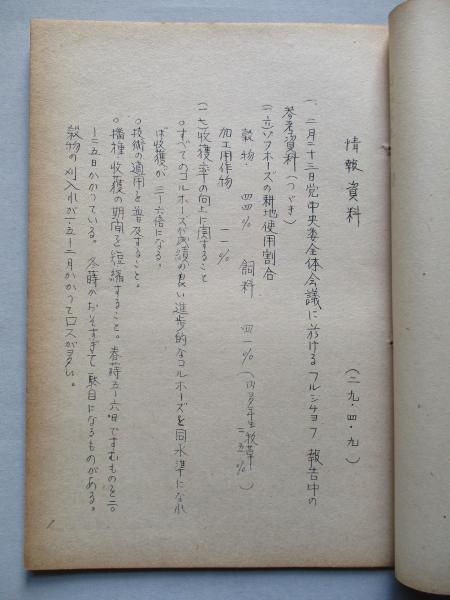 情報資料
(二九・四・九)
一、二月二十三日党中央委全体会議に於けるフルシチョフ報告中の
参考資料(つづき)
(一)立ソフホーズの耕地使用割合
穀物 四四% 飼料 四一%(内多年生牧草 二五%)
加工用作物 一一%
(一七)收獲率の向上に関すること
○すべてのコルホーズが成績の良い進歩的なコルホーズと同水準になれ
ば收獲が三―六倍になる。
○技術の適用を普及すること。
○播種收獲の期間を短縮すること。春蒔五―六日ですむものを二〇
―二五日かかつている。冬蒔がおそすぎて駄目になるものがある。
穀物の刈入れが一五―二月かかつてロスが多い。